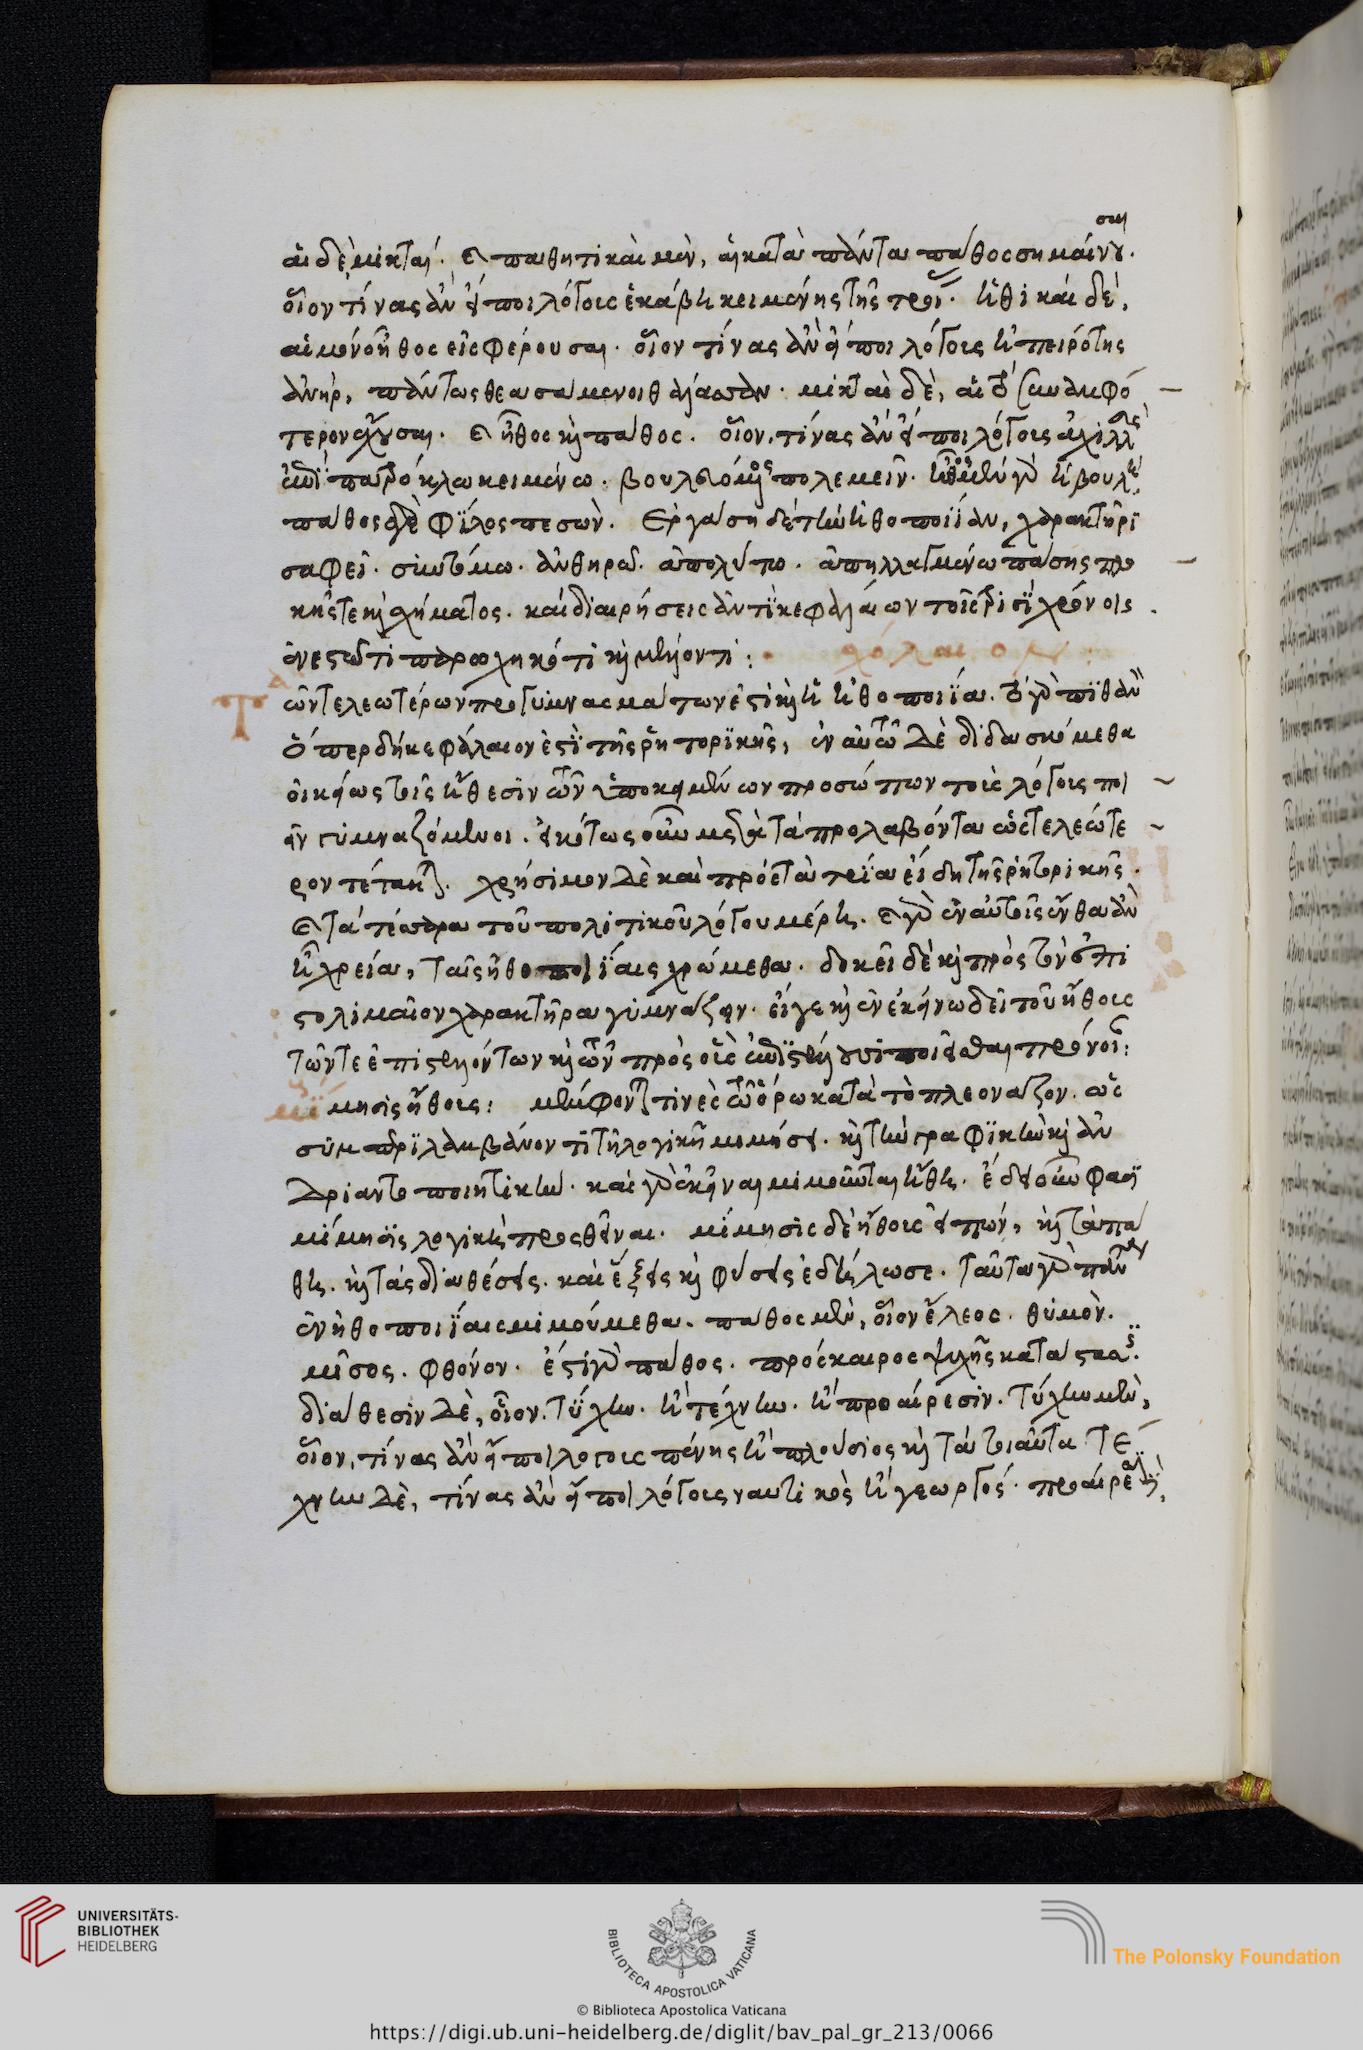 αἱ δὲ μικταί. καὶ παθητικαὶ μὲν, αἱ κατὰ πάντα πάθος σημαίνουσαι.
οἷον τίνας ἂν εἴποι λόγους ἑκάβη κειμένης τῆς τροί. ἠθικαὶ δὲ,
αἱ μόνον ἦθος εἰσφέρουσαι. οἷον τίνας ἂν εἴποι λόγους ἠπειρώτης
ἀνὴρ, πάντως θεασάμενος θάλασσαν. μικταὶ δὲ, αἱ τὸ συναμφό
τερον ἔχουσαι. καὶ ἦθος καὶ πάθος. οἷον, τίνας ἂν εἴποι λόγους ἀχιλλεὺς
ἐπὶ πατρόκλω κειμένω. βουλευόμενος πολεμεῖν. ἦθος μὲν γὰρ ἡ βουλὴ
πάθος δὲ φίλος πεσὼν. Ἐργάση δὲ τὴν ἠθοποιίαν, χαρακτῆρι
σαφεῖ. συντόμω. ἀνθηρῶ. ἀπολύτω. ἀπηλλαγμένω πάσης πλο
κῆς τε καὶ σχήματος. καὶ διαιρήσεις ἀντὶ κεφαλαίων τοῖς τρισὶ χρόνοις
ἐνεστῶτι παρωχηκότι καὶ μέλλοντι:
Τῶν τελεωτέρων προγυμνασμάτων ἐστὶ καὶ ἡ ἠθοποιΐα. τό γὰρ πιθανὸν
ὅπερ δὴ κεφάλαιον ἐστὶ τῆς ῥητορικῆς, ἐν αὐτῶ δὲ διδασκόμεθα
οἰκείως τοῖς ἤθεσιν τῶν ὑποκειμένων προσώπων τοὺς λόγους ποι
εῖν γυμναζόμενοι. εἰκότως οὖν μετὰ τὰ προλαβόντα ὡς τελεώτε
ρον τέτακται. χρήσιμον δὲ καὶ πρὸς τὰ τρία εἴδη τῆς ῥητορικῆς.
καὶ τὰ τέσσαρα τοῦ πολιτικοῦ λόγου μέρη. καὶ γὰρ ἐν αὐτοῖς ἔνθα ἂν
ἦ χρεία, ταῖς ἠθοποιίαις χρώμεθα. δοκεῖ δὲ καὶ πρὸς τὸν ἐπι
στολιμαῖον χαρακτῆρα γυμνάζειν. εἴγε καὶ ἐν ἐκείνω δεῖ τοῦ ἤθους
τῶν τε ἐπιστελλόντων καὶ τῶν πρὸς οὓς ἐπιστέλλουσι ποιεῖσθαι πρόνοιαν:
μίμησις ἤθους: μέμφονται τινὲς τῶ ὅρω κατὰ τὸ πλεονάζον. ὡς
συμπεριλαμβάνοντι τῆ λογικῆ μιμήσει. καὶ τὴν γραφικὴν καὶ ἀν
δριαντοποιητικὴν. καὶ γὰρ ἐκεῖναι μιμοῦνται ἤθη. ἔδει οὖν φασὶ
μίμησις λογικὴ προσθεῖναι. μίμησις δὲ ἤθους εἰπών, καὶ τὰ πά
θη. καὶ τὰς διαθέσεις. καὶ ἕξεις καὶ φύσεις ἐδήλωσε. ταῦτα γὰρ πάντα
ἐν ἠθοποιίαις μιμούμεθα. πάθος μὲν, οἷον ἔλεος. θυμὸν.
μῖσος. φθόνον. ἔστι γὰρ πάθος. πρόσκαιρος ψυχῆς κατάστασις.
διάθεσιν δὲ, οἷον. τύχην. ἢ τέχνην. ἢ προαίρεσιν. τύχην μὲν,
οἷον, τίνας ἂν εἴποι λόγους πένης ἢ πλούσιος καὶ τὰ τοιαῦτα. τέ
χνην δὲ, τίνας ἂν εἴποι λόγους ναυτικὸς ἢ γεωργός. προαίρεσιν δὲ,
UNIVERSITÄTS-
BIBLIOTHEK
HEIDELBERG
BIBLIOTECA APOSTOLICA VATICANA
The Polonsky Foundation
© Biblioteca Apostolica Vaticana
https://digi.ub.uni-heidelberg.de/diglit/bav_pal_gr_213/0066